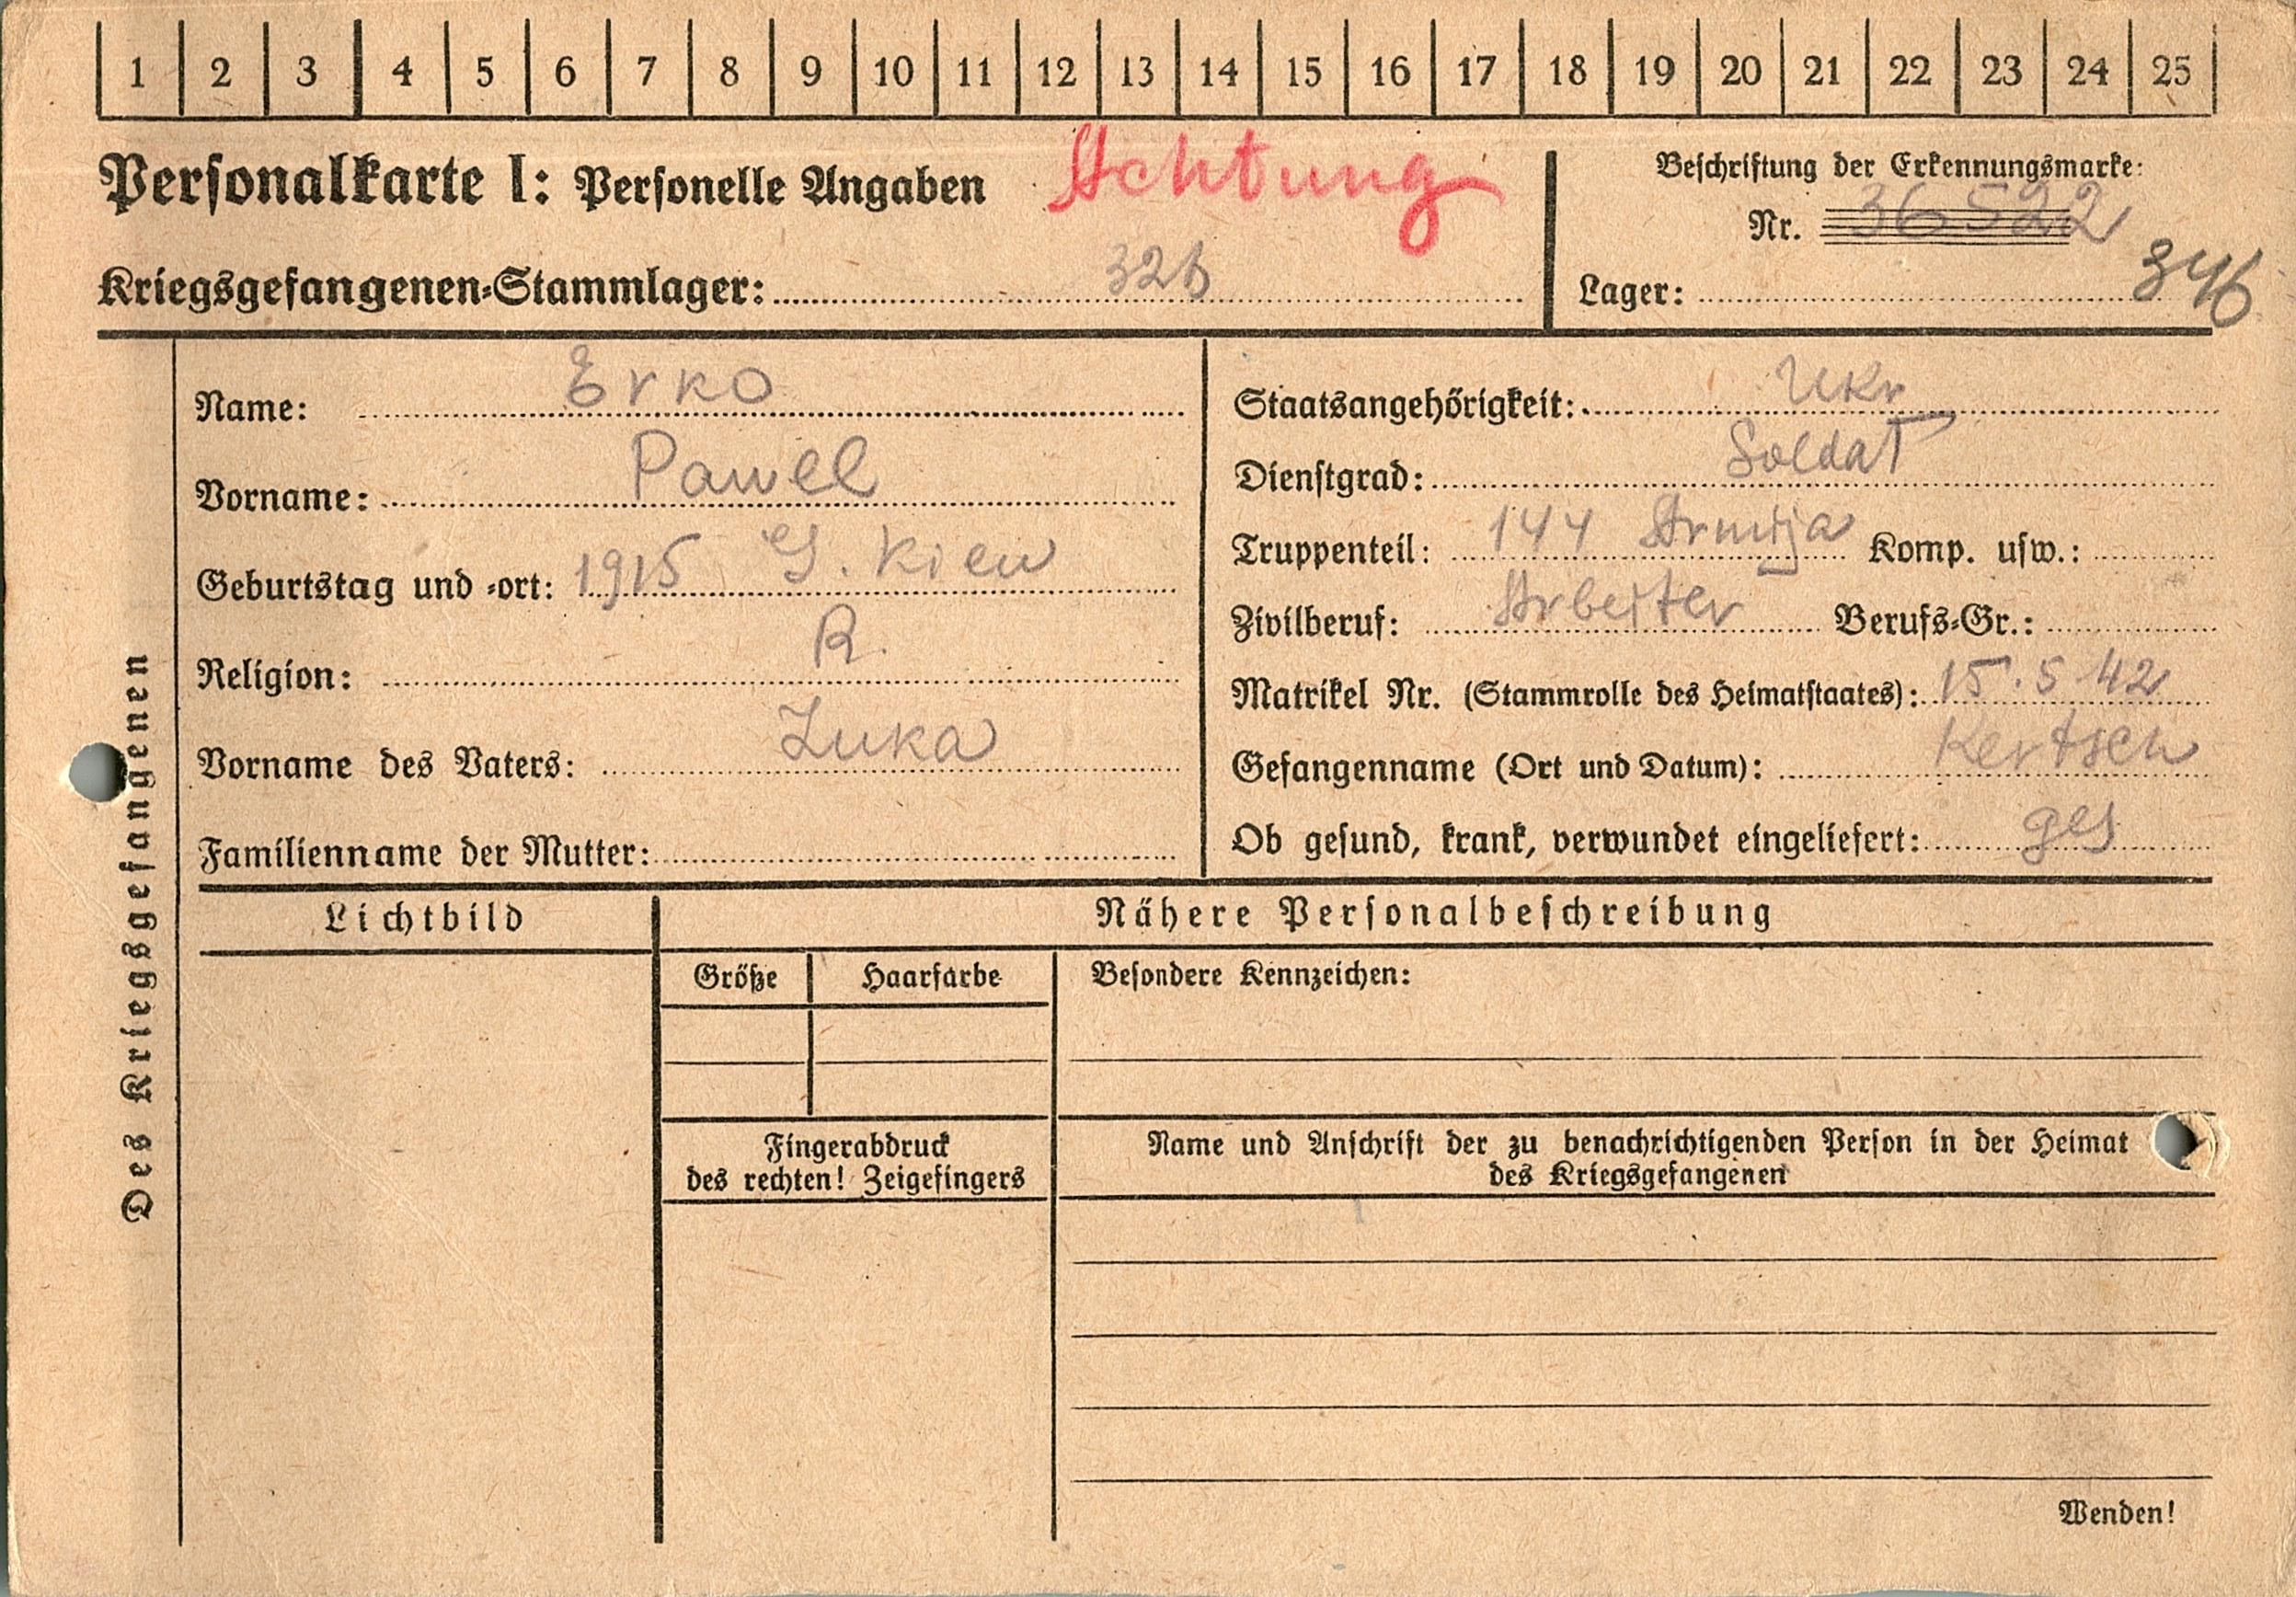 1 2 3 4 5 6 7 8 9 10 11 12 13 14 15 16 17 18 19 20 21 22 23 24 25
Personalkarte I: Personelle Angaben
Achtung
Beschriftung der Erkennungsmarke:
Nr. 36522
Kriegsgefangenen-Stammlager: 326
Lager: 346
Des Kriegsgefangenen
Name: Erko
Vorname: Pawel
Geburtstag und -ort: 1915 G. Kiew
Religion: R.
Vorname des Vaters: Luka
Familienname der Mutter:
Staatsangehörigkeit: Ukr
Dienstgrad: Soldat
Truppenteil: 144 Armija Komp. usw.:
Zivilberuf: Arbeiter Berufs-Gr.:
Matrikel Nr. (Stammrolle des Heimatstaates): 15.5 42
Gefangenname (Ort und Datum): Kertsch
Ob gesund, krank, verwundet eingeliefert: ges
Lichtbild
Nähere Personalbeschreibung
Größe Haarfarbe Besondere Kennzeichen:
Fingerabdruck
des rechten! Zeigefingers
Name und Anschrift der zu benachrichtigenden Person in der Heimat
des Kriegsgefangenen
Wenden!